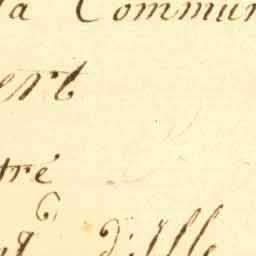 la Commun
ert
tré
d'Ille